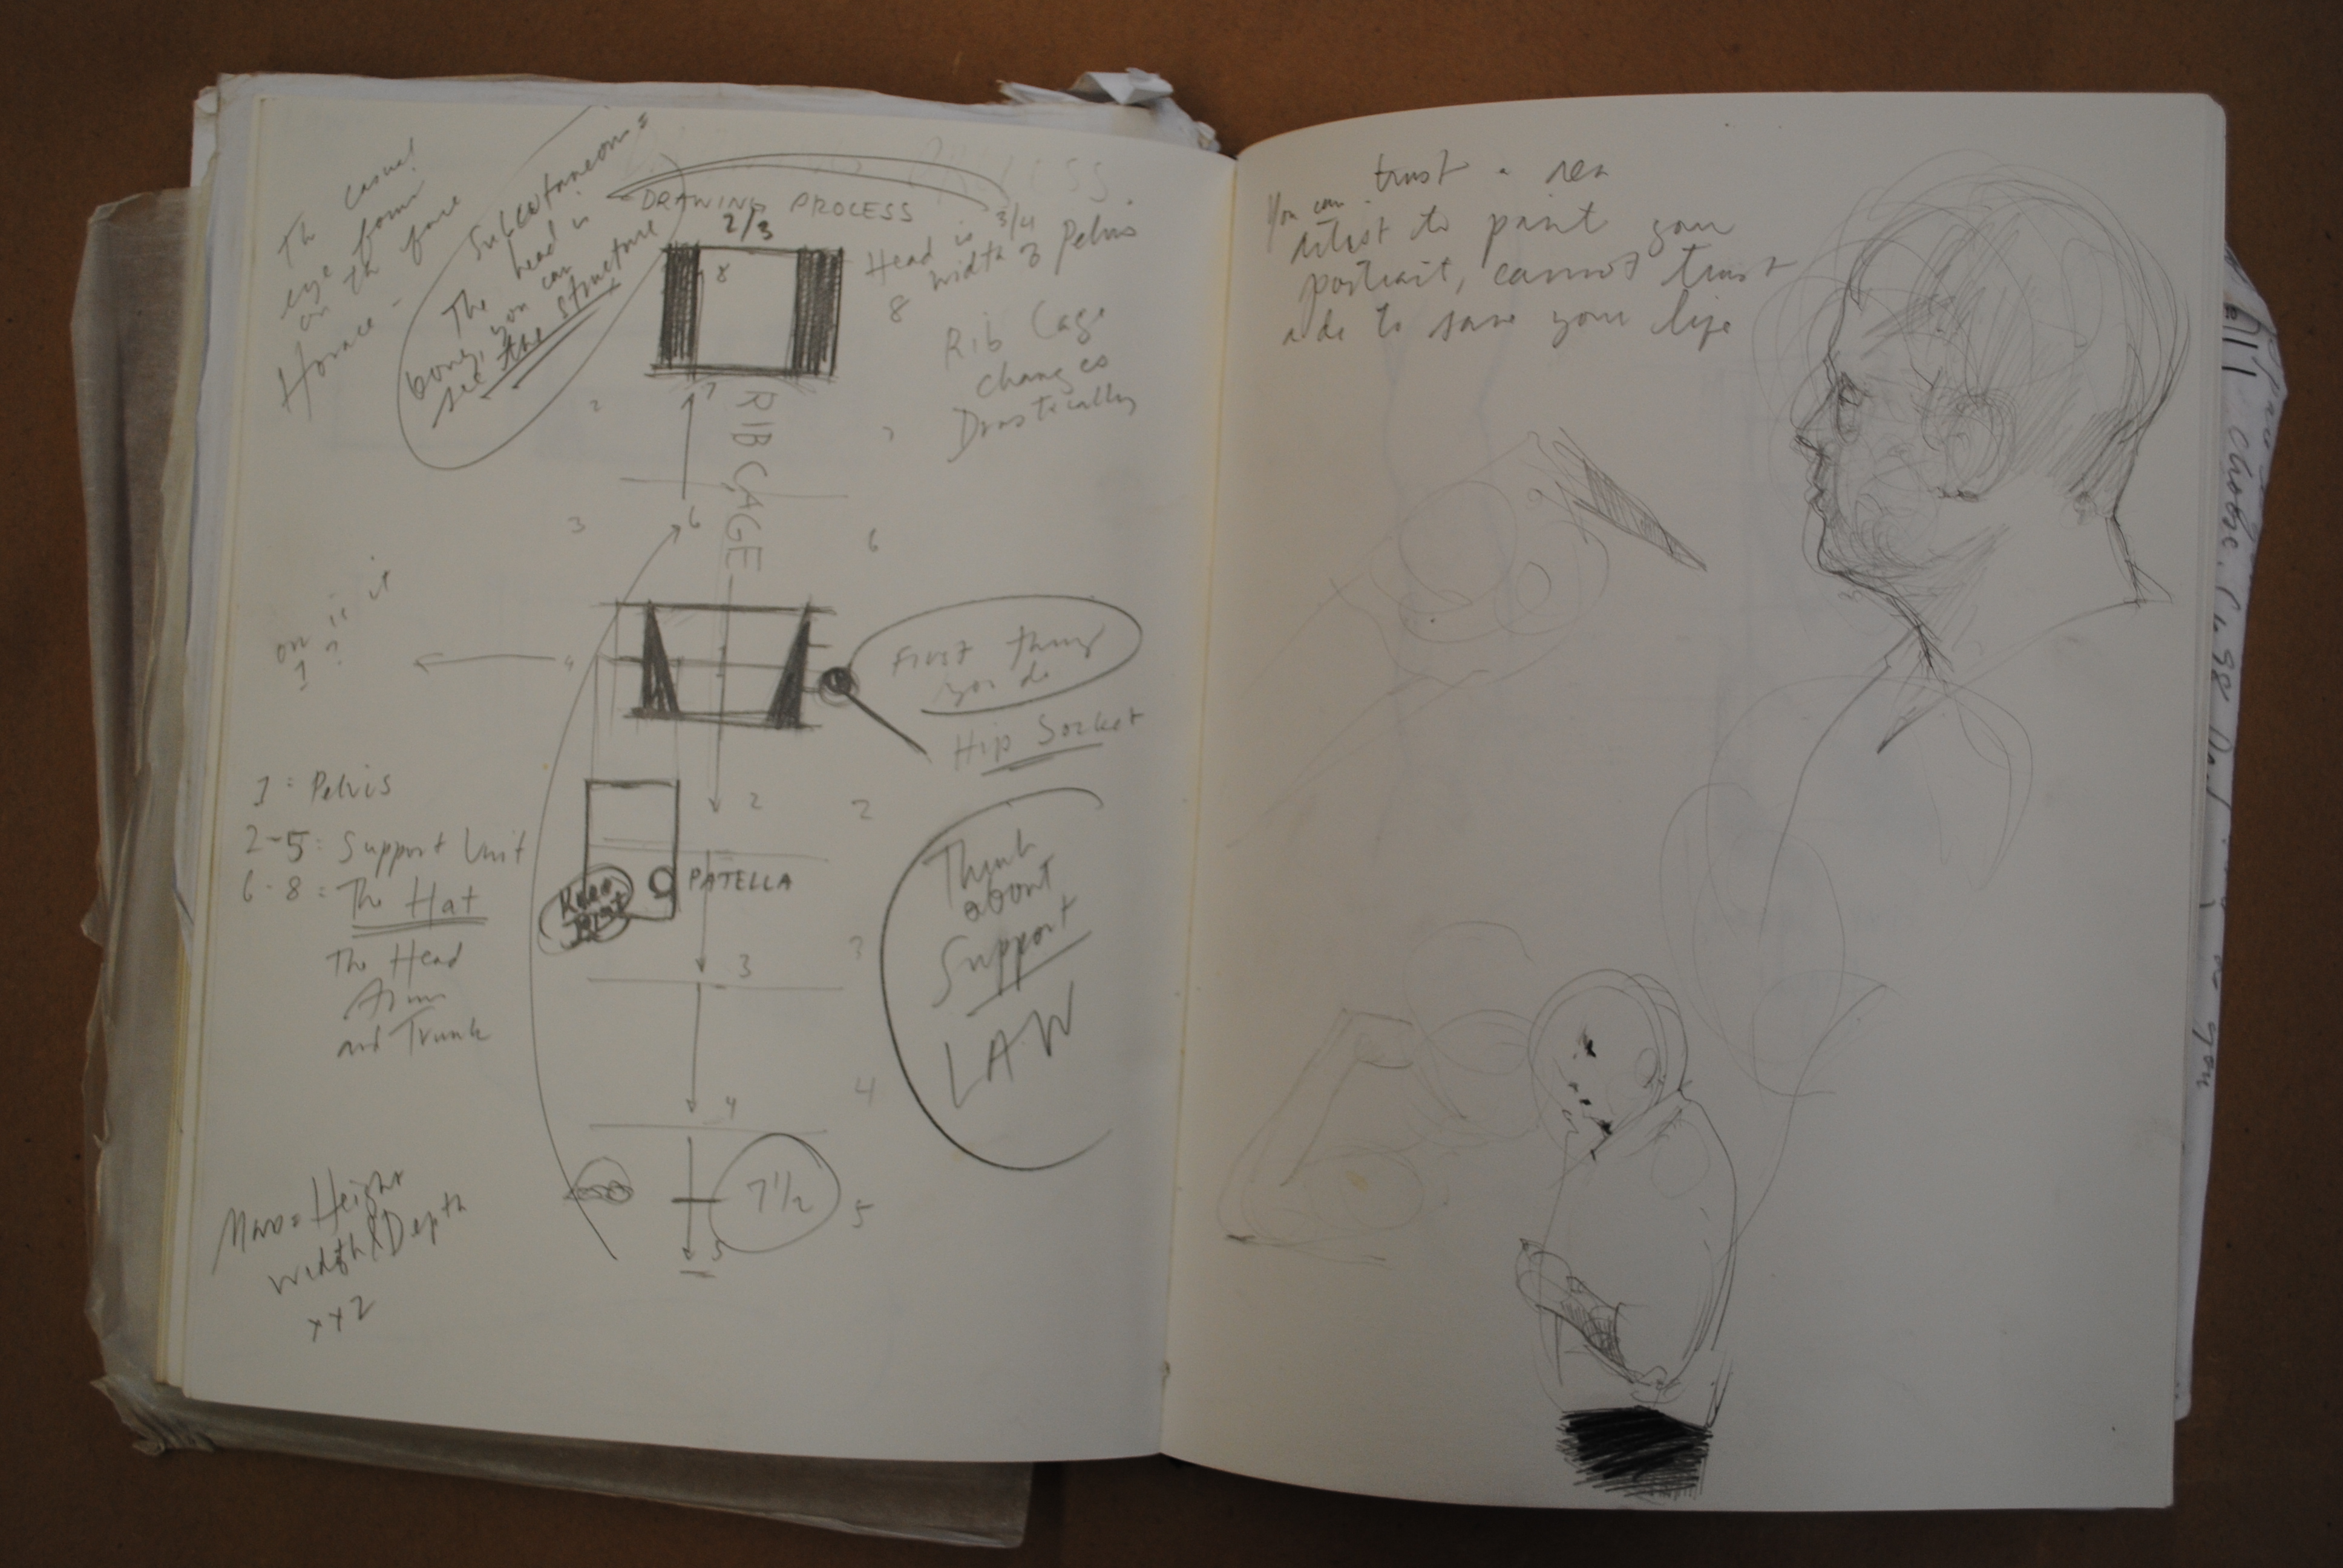 Th casual
eye form
on th face
Horace -
Subcutaneous =
The head is
bony, you can
see the structure
DRAWING PROCESS
2/3
8
Head is 3/4
width of Pelvis
8
Rib Cage
changes
Drastically
7
RIB CAGE
2
7
3
6
6
or is it
1?
4
1
First thing
you do
Hip Socket
1 = Pelvis
2-5 = Support Unit
6-8 = The Hat
The Head
Arms
and Trunk
2
2
Knee
Joint
PATELLA
3
3
Think
about
Support
LAW
4
4
7 1/2
5
5
Height
Width/Depth
You can trust a
artist to paint your
portrait, cannot trust
to save your life